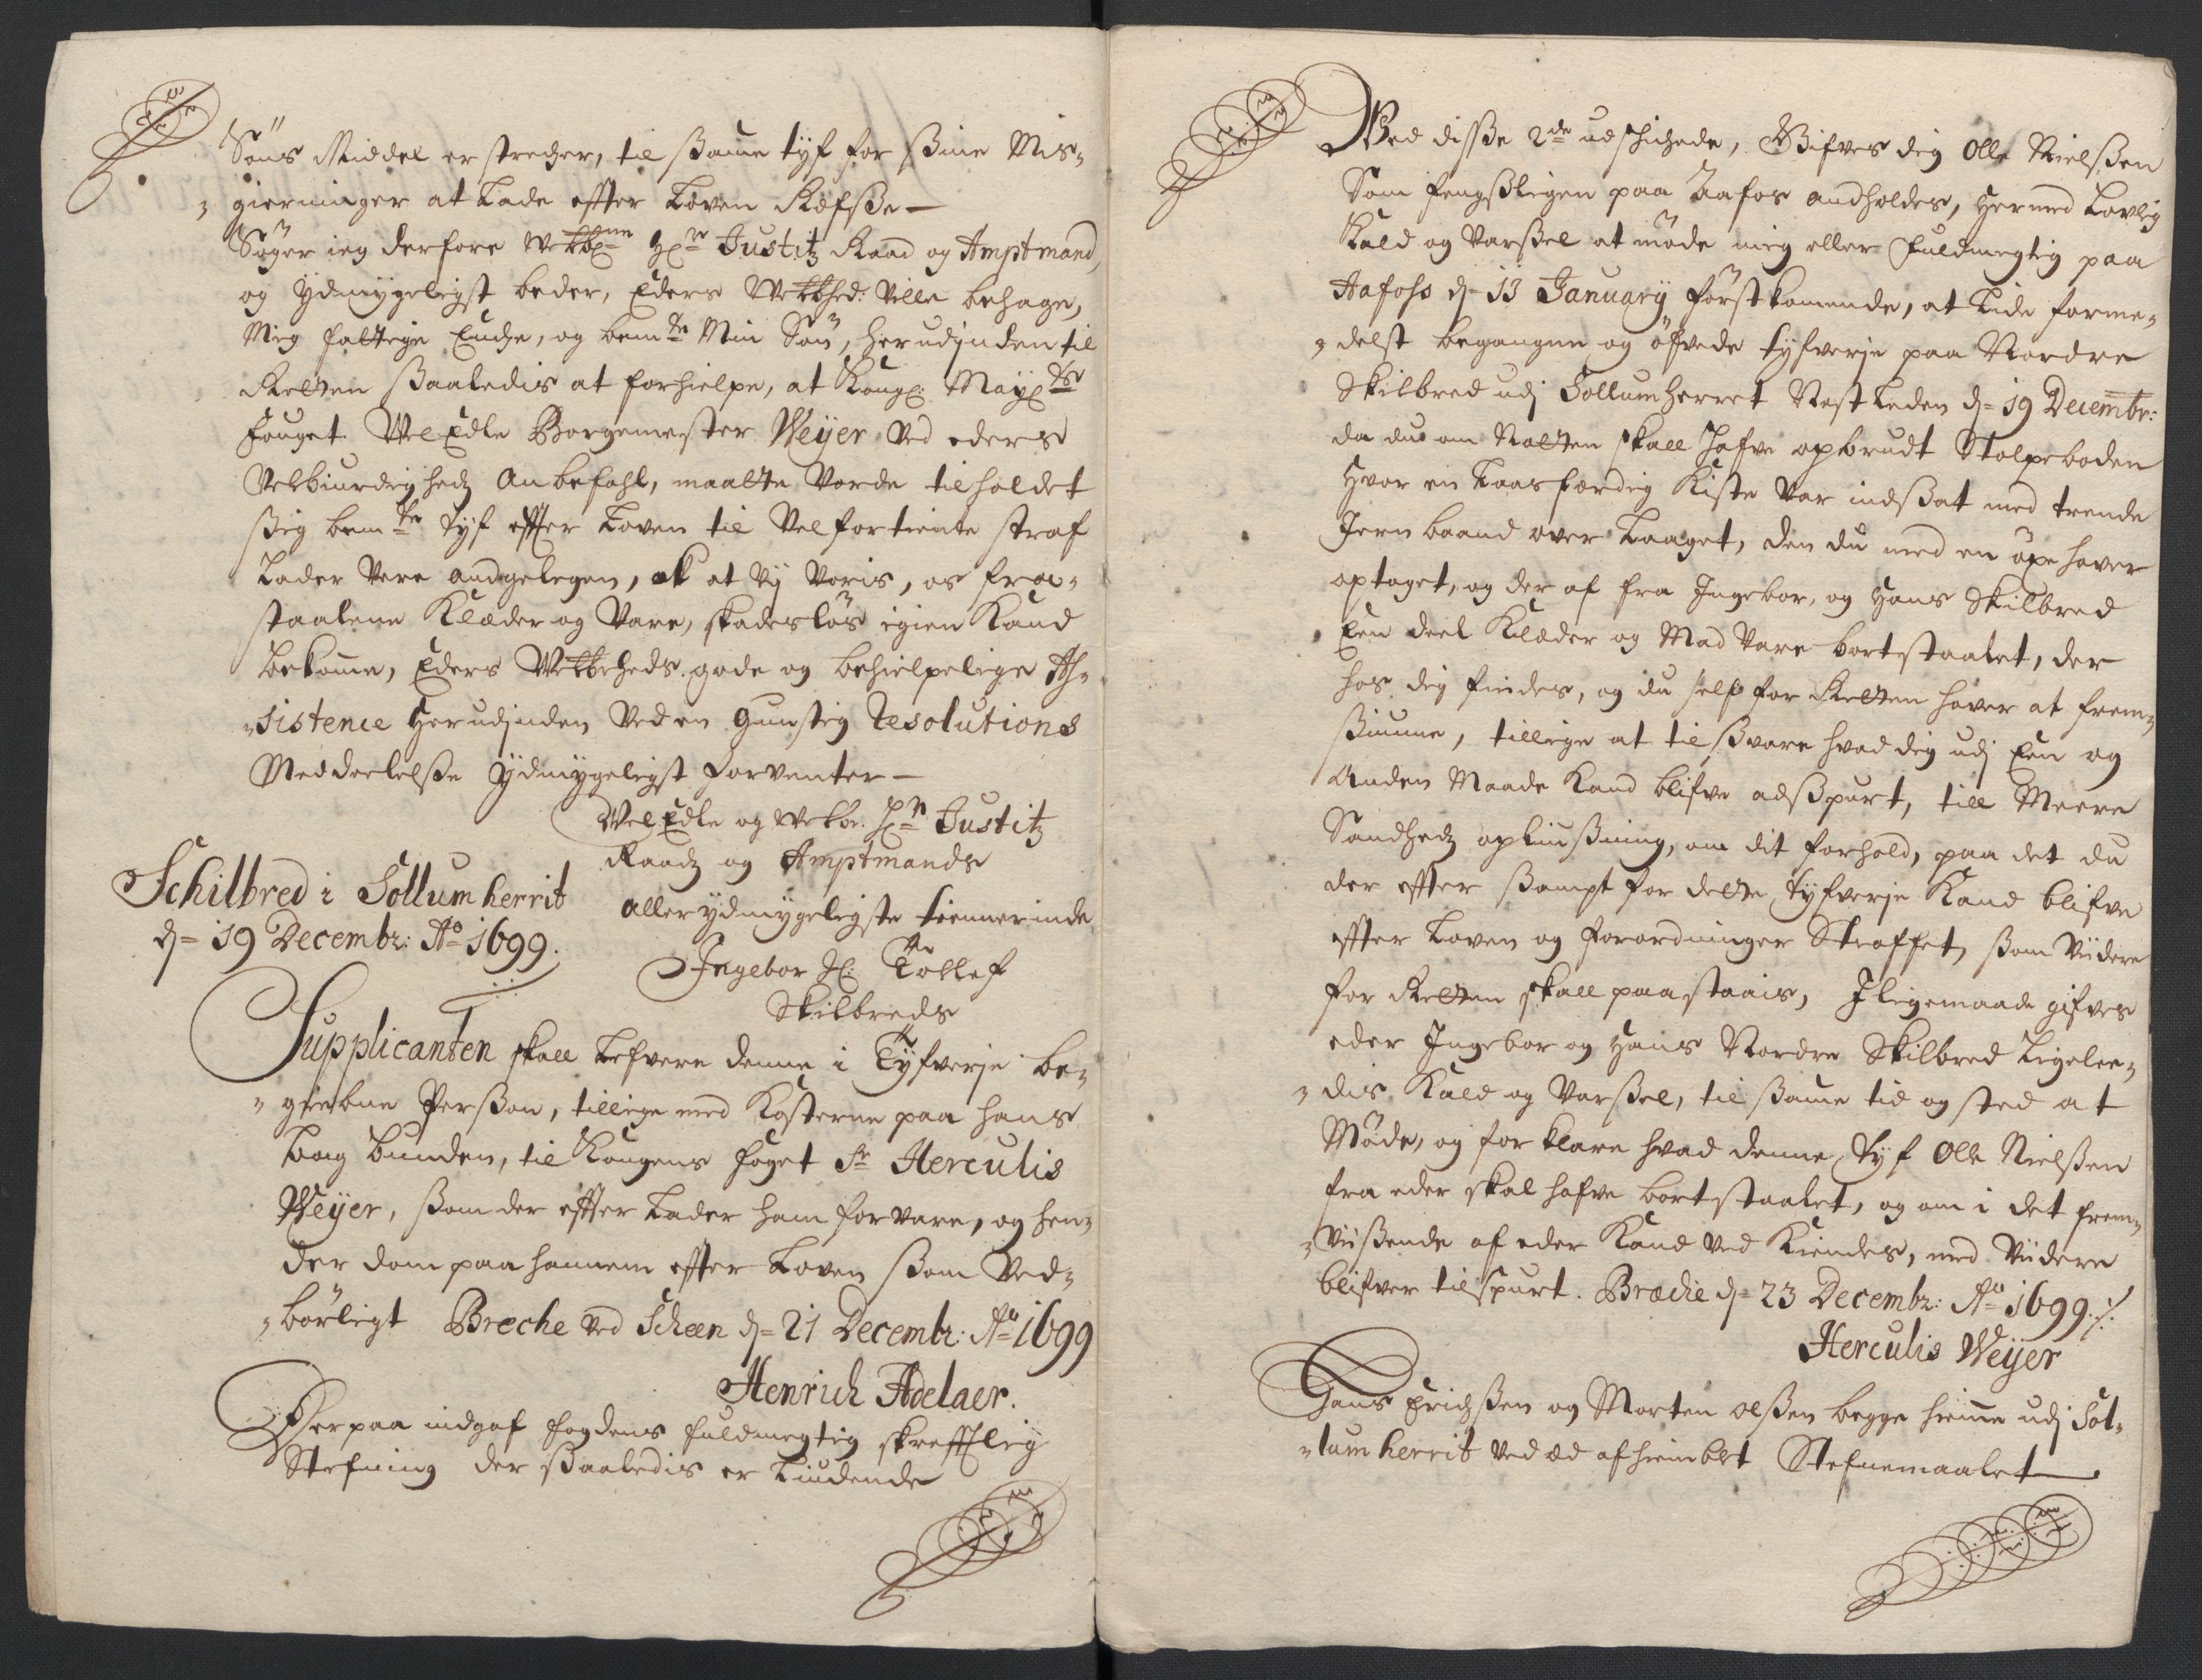 Søns Middel er strecher, til ßame tyf for ßine Mis-
-gierninger at Lade effter Loven Refße —
Søger ieg derfore Hr Justitz Raad og Amptmand,
og Ydmygeligst beder, Eders Velbhed: Ville behage,
Mig fattige Encke, og bemte Min Søn, herudjnden til
Retten ßaaledis at forhielpe, at Kongl: Mayts
fouget VelEdle Borgemester Weyer ved eders
Velbiurdighedz Anbefahl, maatte Vorde tilholdet
ßig bemte tyf effter Loven til Velfortiente straf
Lader Vere andgelegen, ok at Vj Voris, os fra-
staalene Klæder og Vare, skadesløs igien Kand
bekome, Eders Velbrheds gode og behielpelige As-
-sistence herudjnden Ved en gunstig Resolutions
Meddeelelße Ydmygeligst forventer —
VelEdle og Velbr. Hr Justitz
Raadz og Amptmands
allerydmygeligste tiennerinde
Ingebor Sl: Tollef
Skilbreds
Schilbred i Sollumherrit
d= 19 Decembr: Ao 1699.
Supplicanten skall Lefvere denne i Tyfverje be-
-grebne Perßon, tillige med Kosterne paa hans
bag bunden, til Kongens foget Sr Herculis
Weyer, ßom der effter Lader ham forvare, og hen-
der dom paa hannem effter Loven ßom Ved-
-børligt Breche ved Scheen d= 21 Decembr: Ao 1699
Henrich Adelaer.
Herpaa indgaf fogdens fuldmegtig skrefftlig
Stefning der ßaaledis er Liudende
Ved disße 2de udskichede, Gifves dig Olle Nielßen
Som fengßligen paa Aafos andholdes, hermed Lovlig
Kald og Varßel at møde mig eller fuldmegtig paa
Aafoss d= 13 January førstkomende, at Lide forme-
-delst begangne og øfvede tyfverje paa Nordre
Skilbred udj Sollumherret Nestleden d= 19 Decembr:
da du om Natten skall hafve opbrudt Stolpeboden
hvor en Laasferdig Kiste Var indßat med trende
Jern baand over Laaget, den du med en øxe haver
optaget, og der af fra Ingebor, og Hans Skilbred
Een deel Klæder og Mad Vare bortstaalet, der
hos dig findes, og du self for Retten haver at frem-
ßiunne, tillige at tilßvare hvad dig udj Een og
Anden Maade Kand blifve adßpurt, till Meere
Sandhedz opliußning, om dit forhold, paa det du
der effter ßampt for dette tyfverje Kand blifve
effter Loven og forordninger Straffet, ßom Viidere
for Retten skall paastaais, Jligemaade gifves
eder Ingebor og Hans Nordre Skilbred Ligelee-
-dis Kald og Varßel, til ßame tid og sted at
Møde, og forklare hvad denne tyf Olle Nielßen
fra eder skal hafve bortstaalet, og om i det frem-
-viißende af eder Kand ved Kiendes, med Viidere
blifver tilspurt. Bræche d= 23 Decembr: Ao 1699 ./.
Herculis Weyer
Hans Erichßen og Morten Olßen begge hieme udj Sol-
-lumherrit ved æd afhiemblet Stefnemaalet